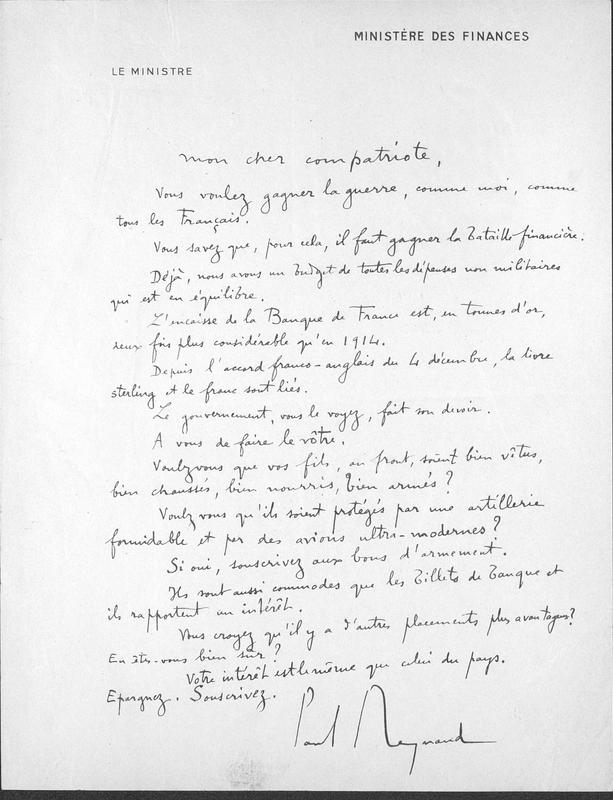 MINISTÈRE DES FINANCES
LE MINISTRE
Mon cher compatriote,
Vous voulez gagner la guerre, comme moi, comme
tous les Français.
Vous savez que, pour cela, il faut gagner la bataille financière.
Déjà, nous avons un budget de toutes les dépenses non militaires
qui est en équilibre.
L'encaisse de la Banque de France est, en tonnes d'or,
deux fois plus considérable qu'en 1914.
Depuis l'accord franco-anglais du 4 décembre, la livre
sterling et le franc sont liés.
Le gouvernement, vous le voyez, fait son devoir.
A vous de faire le vôtre.
Voulez vous que vos fils, au front, soient bien vêtus,
bien chaussés, bien nourris, bien armés ?
Voulez vous qu'ils soient protégés par une artillerie
formidable et par des avions ultra-modernes ?
Si oui, souscrivez aux bons d'armement.
Ils sont aussi commodes que les billets de banque et
ils rapportent un intérêt.
Vous croyez qu'il y a d'autres placements plus avantageux ?
En êtes-vous bien sûr ?
Votre intérêt est le même que celui du pays.
Epargnez. Souscrivez.
Paul Reynaud